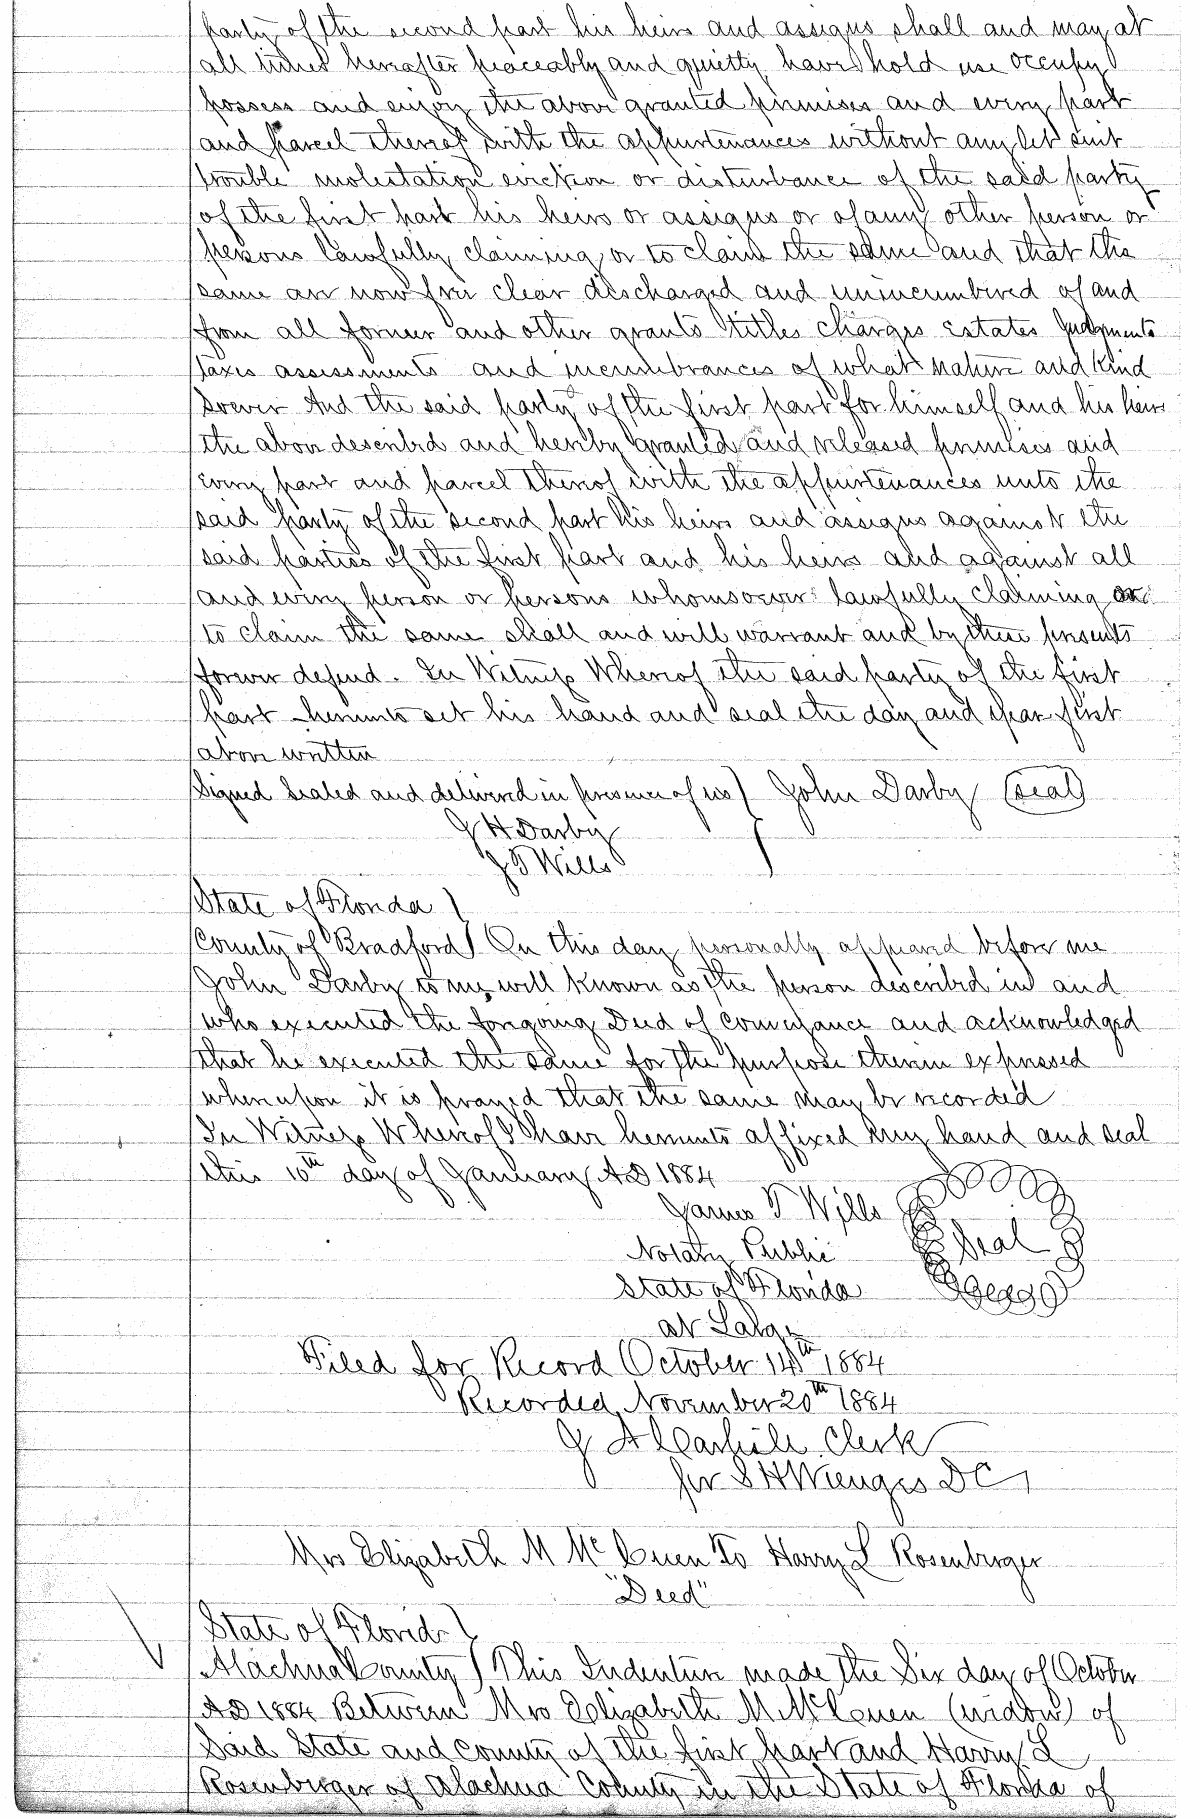 party of the second part his heirs and assigns shall and may at
all times hereafter peaceably and quietly have hold use occupy
possess and enjoy the above granted premises and every part
and parcel thereof with the appurtenances without any let suit
trouble molestation eviction or disturbance of the said party
of the first part his heirs or assigns or of any other person or
persons lawfully claiming or to claim the same and that the
same are now free clear discharged and unincumbered of and
from all former and other grants titles charges estates judgments
taxes assessments and incumbrances of what nature and kind
soever And the said party of the first part for himself and his heirs
the above described and hereby granted and released premises and
every part and parcel thereof with the appurtenances unto the
said party of the second part his heirs and assigns against the
said parties of the first part and his heirs and against all
and every person or persons whomsoever lawfully claiming or
to claim the same shall and will warrant and by these presents
forever defend. In Witness Whereof the said party of the first
part hereunto set his hand and seal the day and year first
above written
Signed Sealed and delivered in presence of us) John Darby (seal)
J H Darby
J T Wills
State of Florida
County of Bradford) On this day personally appeared before me
John Darby to me well known as the person described in and
who executed the forgoing Deed of Conveyance and acknowledged
that he executed the same for the purpose therein expressed
whereupon it is prayed that the same may be recorded
In Witness Whereof I have hereunto affixed my hand and seal
this 10th day of January AD 1884
James T Wills
Notary Public Seal
State of Florida
at Large
Filed for Record October 14th 1884
Recorded November 20th 1884
J A Carlisle Clerk
per S H Wienges DC
Mrs Elizabeth M McCuen To Harry L Rosenberger
"Deed"
State of Florida
Alachua County) This Indenture made the Six day of October
AD 1884 Between Mrs Elizabeth M McCuen (widow) of
Said State and County of the first part and Harry L
Rosenberger of Alachua County in the State of Florida of